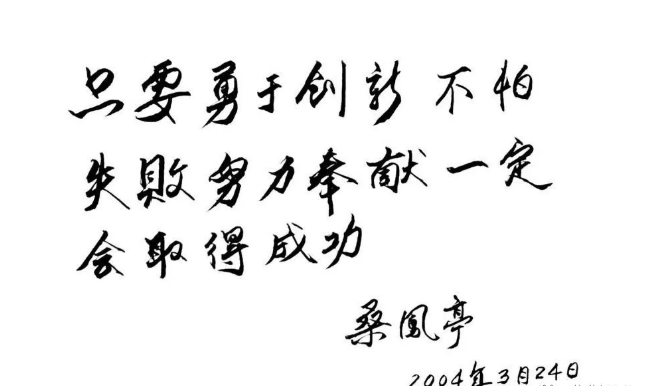 只要勇于创新 不怕
失敗努力奉献一定
会取得成功
桑鳳亭
2004年3月24日